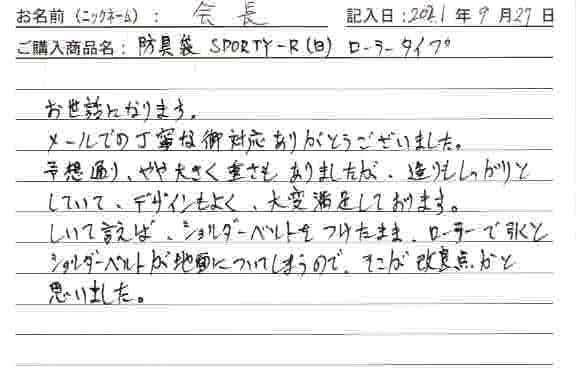 お名前（ニックネーム）： 会長 記入日：2021年9月27日
ご購入商品名： 防具袋 SPORTY-R(白) ローラータイプ
お世話になります。
メールでの丁寧な御対応ありがとうございました。
予想通り、やや大きく重さもありましたが、造りもしっかりと
していて、デザインもよく、大変満足しております。
しいて言えば、ショルダーベルトをつけたまま、ローラーで引くと
ショルダーベルトが地面についてしまうので、そこが改良点かと
思いました。